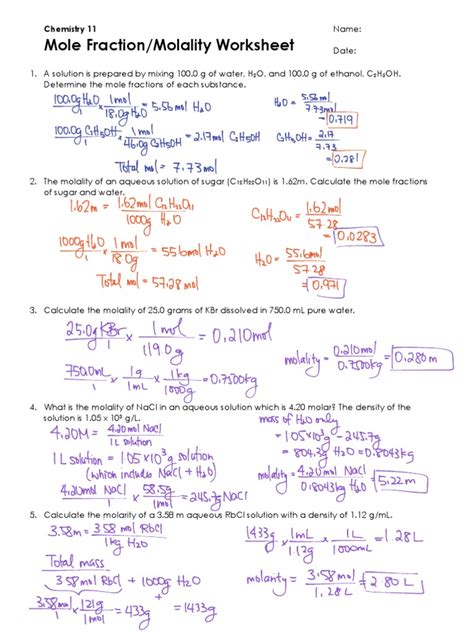 Chemistry 11
Name:
Mole Fraction/Molality Worksheet
Date:
1. A solution is prepared by mixing 100.0 g of water, H₂O, and 100.0 g of ethanol, C₂H₅OH.
Determine the mole fractions of each substance.
100.0g H₂O / 1 × 1mol / 18.0g H₂O = 5.56 mol H₂O
H₂O = 5.56 mol / 7.73 mol = 0.719
100.0g C₂H₅OH / 1 × 1mol / 46.0g C₂H₅OH = 2.17mol C₂H₅OH
C₂H₅OH = 2.17 / 7.73 = 0.281
Total mol = 7.73 mol
2. The molality of an aqueous solution of sugar (C₁₂H₂₂O₁₁) is 1.62m. Calculate the mole fractions
of sugar and water.
1.62m = 1.62 mol C₁₂H₂₂O₁₁ / 1000g H₂O
C₁₂H₂₂O₁₁ = 1.62mol / 57.28 = 0.0283
1000g H₂O / 1 × 1mol / 18.0g = 55.6 mol H₂O
H₂O = 55.6mol / 57.28 = 0.971
Total mol = 57.28 mol
3. Calculate the molality of 25.0 grams of KBr dissolved in 750.0 mL pure water.
25.0g KBr / 1 × 1 mol / 119.0g = 0.210mol
750.0mL / 1 × 1g / 1mL × 1kg / 1000g = 0.7500kg
molality = 0.210mol / 0.7500kg = 0.280 m
4. What is the molality of NaCl in an aqueous solution which is 4.20 molar? The density of the
solution is 1.05 x 10³ g/L.
4.20M = 4.20mol NaCl / 1L solution
1L solution = 1.05×10³g solution
(which includes NaCl + H₂O)
4.20mol NaCl / 1 × 58.5g / 1mol = 245.7g NaCl
mass of H₂O only
= 1.05×10³g - 245.7g
= 804.3g H₂O = 0.8043kg
molality = 4.20 mol NaCl / 0.8043kg H₂O = 5.22 m
5. Calculate the molarity of a 3.58 m aqueous RbCl solution with a density of 1.12 g/mL.
3.58m = 3.58 mol RbCl / 1kg H₂O
Total mass
3.58 mol RbCl + 1000g H₂O
3.58mol / 1 × 121g / 1mol = 433g + 1000g = 1433g
1433g / 1 × 1mL / 1.12g × 1L / 1000mL
molarity = 3.58mol / 1.28L = 2.80 L